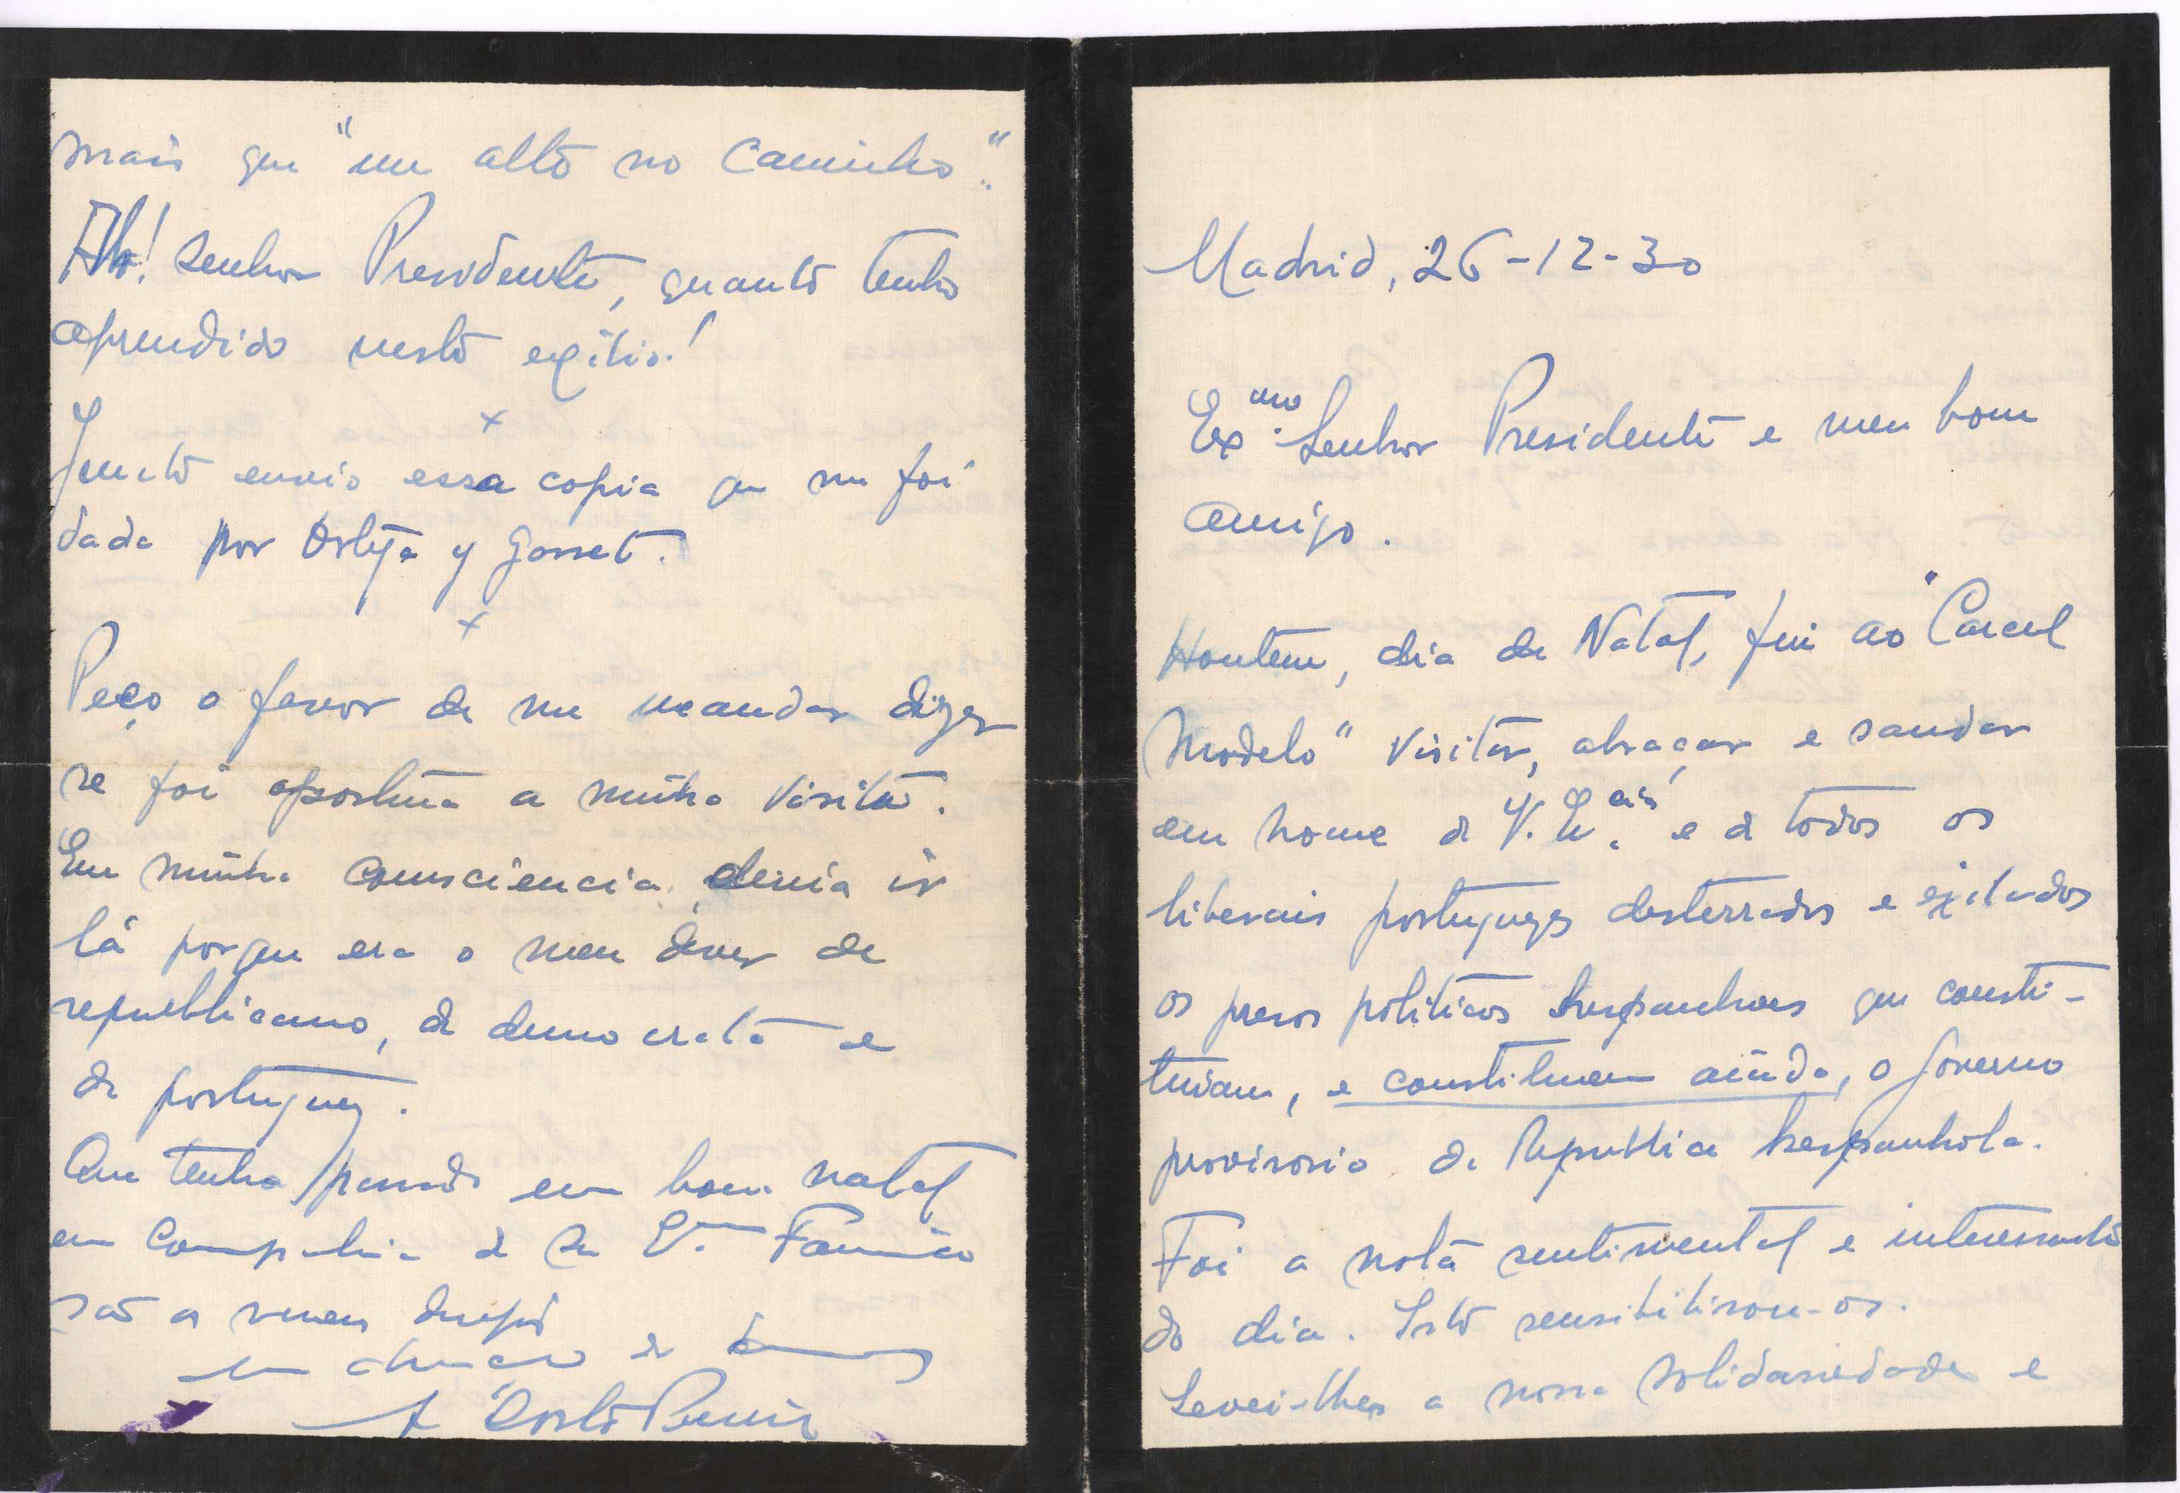 Madrid, 26-12-30
Exmo. Senhor Presidente e meu bom
amigo.
Hontem, dia de Natal, fui ao "Carcel
Modelo" visitar, abraçar e saudar
em nome de V. Ex.cia e de todos os
liberais portuguezes desterrados e exilados
os presos politicos hespanhoes que consti-
tuiam, e constituem ainda, o governo
provisorio da Republica hespanhola.
Foi a nota sentimental e interessante
do dia. Isto sensibilisou-os.
Levei-lhes a nossa solidariedade e
mais que "um alto no caminho".
Ah! Senhor Presidente, quanto tenho
aprendido neste exilio!
x
Junto envio essa copia que me foi
dada por Ortega y Gasset.
x
Peço o favor de me mandar dizer
se foi oportuna a minha visita.
Em minha consciencia, devia ir
lá porque era o meu dever de
republicano, de democrata e
de portuguez.
Que tenha passado um bom natal
em companhia de Sua Familia
são os meus desejos
um abraço de